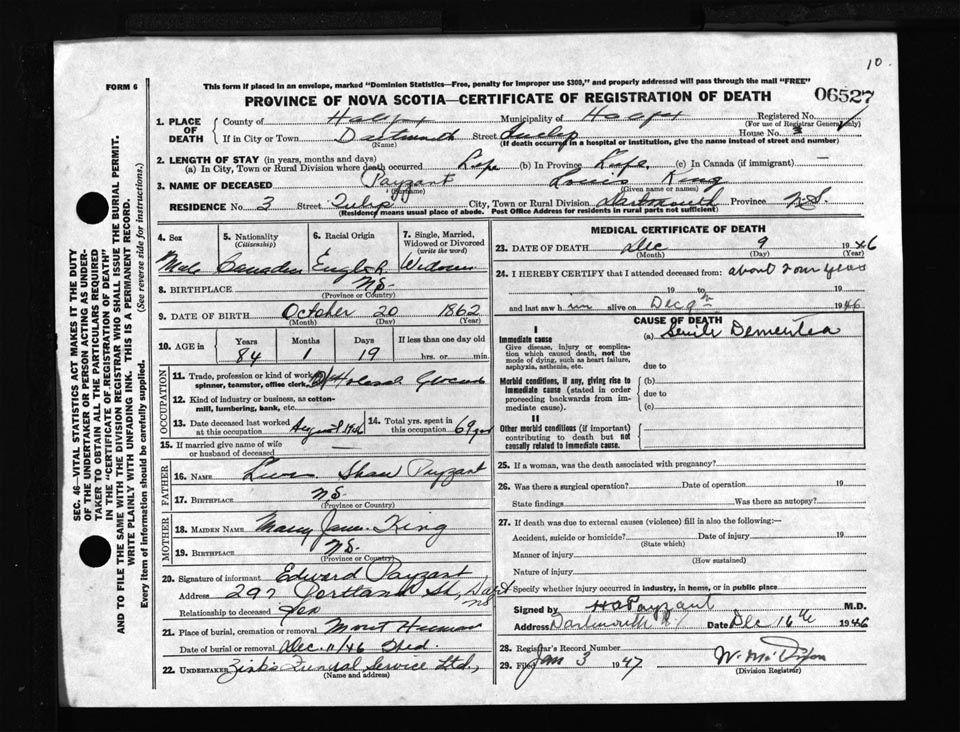 10.
FORM 6
This form if placed in an envelope, marked "Dominion Statistics—Free, penalty for improper use $300," and properly addressed will pass through the mail "FREE"
PROVINCE OF NOVA SCOTIA—CERTIFICATE OF REGISTRATION OF DEATH
06527
1. PLACE OF DEATH
County of Halifax Municipality of Halifax Registered No.
(For use of Registrar General only)
If in City or Town Dartmouth Street Tulip House No. 3
(Name) (If death occurred in a hospital or institution, give the name instead of street and number)
2. LENGTH OF STAY (in years, months and days)
(a) In City, Town or Rural Division where death occurred Life (b) In Province Life (c) In Canada (if immigrant) —
3. NAME OF DECEASED Payzant Louis King
(Surname) (Given name or names)
RESIDENCE No. 3 Street Tulip City, Town or Rural Division Dartmouth Province N.S.
(Residence means usual place of abode. Post Office Address for residents in rural parts not sufficient)
SEC. 46—VITAL STATISTICS ACT MAKES IT THE DUTY
OF THE UNDERTAKER OR PERSON ACTING AS UNDER-
TAKER TO OBTAIN ALL THE PARTICULARS REQUIRED
IN THE "CERTIFICATE OF REGISTRATION OF DEATH"
AND TO FILE THE SAME WITH THE DIVISION REGISTRAR WHO SHALL ISSUE THE BURIAL PERMIT.
WRITE PLAINLY WITH UNFADING INK. THIS IS A PERMANENT RECORD.
Every item of information should be carefully supplied. (See reverse side for instructions.)
4. Sex
Male
5. Nationality
(Citizenship)
Canadian
6. Racial Origin
English
7. Single, Married,
Widowed or Divorced
(write the word)
8. BIRTHPLACE N.S.
(Province or Country)
9. DATE OF BIRTH October 20 1862
(Month) (Day) (Year)
10. AGE in
Years Months Days If less than one day old
84 1 19 hrs. or min.
OCCUPATION
11. Trade, profession or kind of work as
spinner, teamster, office clerk,
12. Kind of industry or business, as cotton-
mill, lumbering, bank, etc.
13. Date deceased last worked
at this occupation
14. Total yrs. spent in
this occupation 69 yrs
15. If married give name of wife
or husband of deceased
FATHER
16. NAME Shaw Payzant
17. BIRTHPLACE N.S.
(Province or Country)
MOTHER
18. MAIDEN NAME Mary Jane King
19. BIRTHPLACE N.S.
(Province or Country)
20. Signature of informant Edward Payzant
Address 297 Portland St, Dart NS
Relationship to deceased
21. Place of burial, cremation or removal Mount Hermon
Date of burial or removal Dec. 11/46 Wed.
22. UNDERTAKER Zink's Funeral Service Ltd,
(Name and address)
MEDICAL CERTIFICATE OF DEATH
23. DATE OF DEATH Dec 9 1946
(Month) (Day) (Year)
24. I HEREBY CERTIFY that I attended deceased from: about 2 or 4 years
19 to 19
and last saw him alive on Dec 9th 1946
CAUSE OF DEATH
I
Immediate cause
Give disease, injury or complica-
tion which caused death, not the
mode of dying, such as heart failure,
asphyxia, asthenia, etc.
(a) Senile Dementia
due to
Morbid conditions, if any, giving rise to
immediate cause (stated in order
proceeding backwards from im-
mediate cause).
(b)
due to
(c)
II
Other morbid conditions (if important)
contributing to death but not
causally related to immediate cause.
25. If a woman, was the death associated with pregnancy?
26. Was there a surgical operation? Date of operation 19
State findings Was there an autopsy?
27. If death was due to external causes (violence) fill in also the following:—
Accident, suicide or homicide? Date of injury 19
(State which)
Manner of injury
(How sustained)
Nature of injury
Specify whether injury occurred in industry, in home, or in public place
Signed by H A Payzant M.D.
Address Dartmouth Date Dec 16th 1946
28. Registrar's Record Number
29. Filed Jan 3 1947
(Division Registrar)